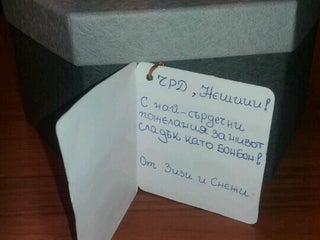 ЧРД, Нешиии!
С най-сърдечни
пожелания за живот
сладък като бонбон!
От Зизи и Снежи.